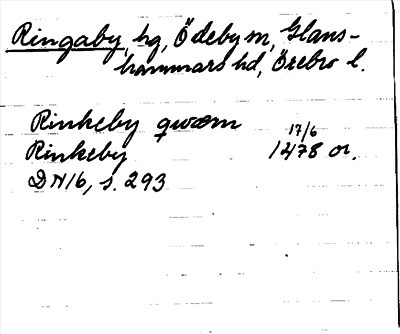 Ringaby, hg, Ödeby sn, Glans-
hammars hd, Örebro l.
Rinkeby qwærn
17/6
Rinkeby 1478 or.
DN 16, s. 293